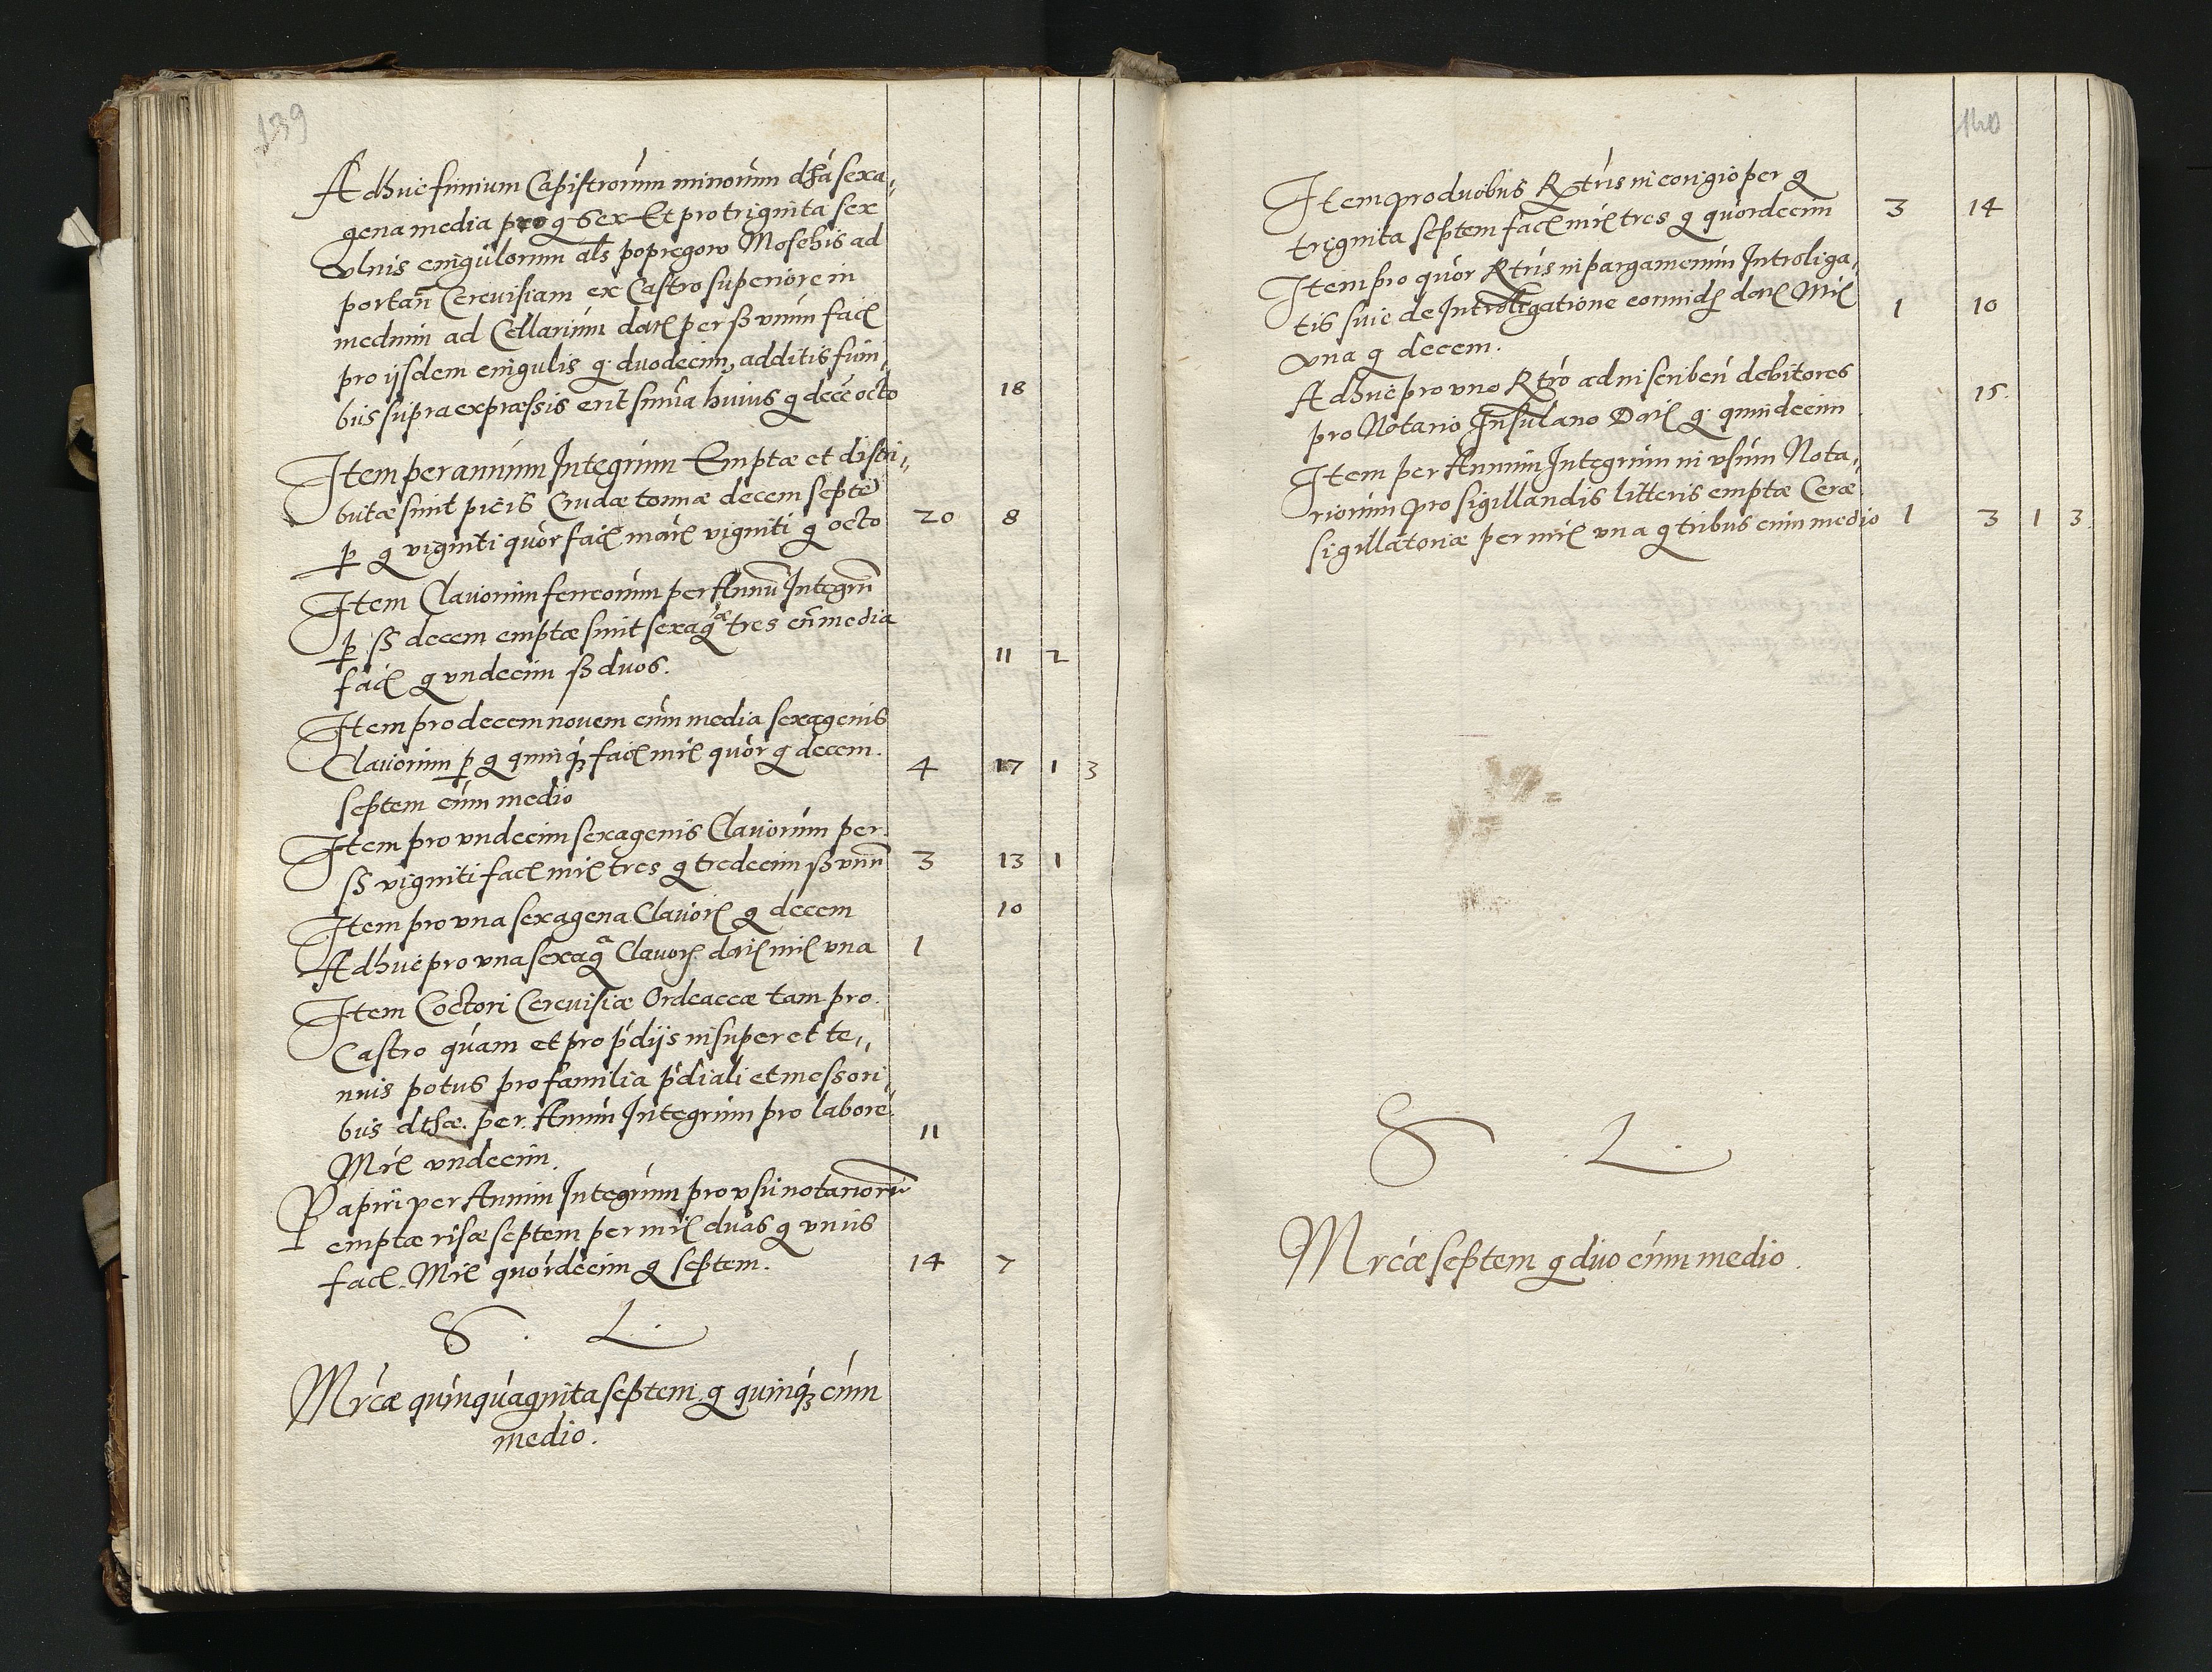 139
Adhuc funium Capistrorum minorum dta sexa,,
gena media pro g sex Et pro triginta sex
vlnis cingulorum als popręgow Moschis ad
portan Cereuisiam ex Castro superiore in
medium ad Cellarium dat per ß vnum facit
pro ijsdem cingulis g. duodecim, additis funi,,
bus supra expraessis erit summa huius g dece octo 18
Item per annum Integrum Emptæ et distri,,
butæ sunt picis Crudæ tonnæ decem septe
p g viginti quor facit marc viginti g octo 20 8
Item Clauorum ferreorum per Annu Integru
p ß decem emptæ sunt sexagæ tres cu media
facit g vndecim ß duos. 11 2
Item pro decem nouem cum media sexagenis
Clauorum p g quinqꝫ facit mrc quor g decem
septem cum medio 4 17 1 3
Item pro vndecim sexagenis Clauorum per
ß viginti facit mrc tres g tredecim ß vnu 3 13 1
Item pro vna sexagena Clauor g decem 10
Adhuc pro vna sexaga Clauor dat mrc vna 1
Item Coctori Cereuisiæ Ordeaceæ tam pro
Castro quam et pro pdijs insuper et te,,
nuis potus pro familia pdiali et messori,,
bus dtæ per Annum Integrum pro labore
Mrc vndecim. 11
Papiri per Annum Integrum pro vsu notarioru
emptæ risæ septem per mrc duas g vnus
facit Mrc quordecim g septem. 14 7
S. L.
Mrcæ quinquaginta septem g quinqꝫ cum
medio.
140
Item pro duobus Rtris in corigio per g
triginta septem facit mrc tres g quordecim 3 14
Item pro quor Rtris in pargamenum Introliga,,
tis siue de Introligatione eorund dat Mrc
vna g decem. 1 10
Adhuc pro vno Rtro ad inscriben debitores
pro Notario Insulano Dat g. quindecim 15.
Item per Annum Integrum in vsum Nota,,
riorum pro sigillandis litteris emptæ Ceræ
sigillatoriæ per mrc vna g tribus cum medio 1 3 1 3
S. L.
Mrcæ septem g duo cum medio.